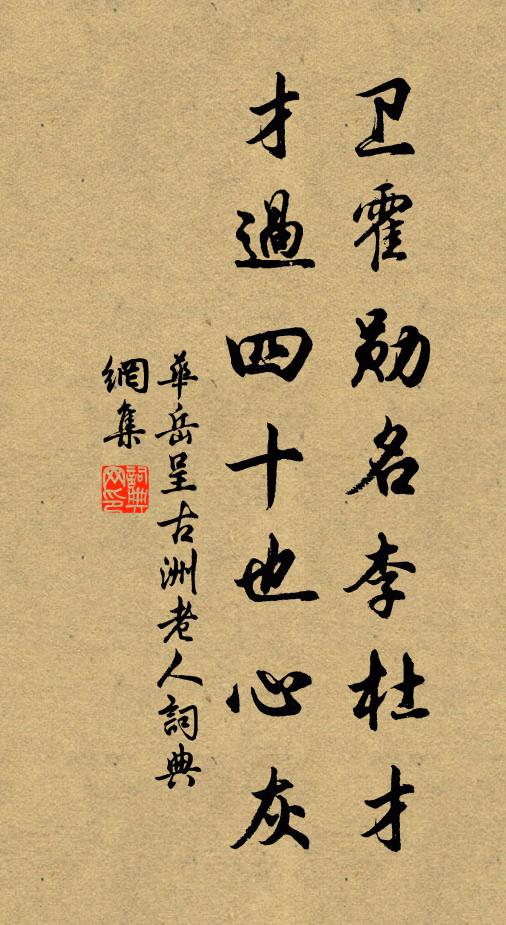 卫霍勋名李杜才
才過四十也心灰
華岳呈古洲老人詞典
網集
詞典
网印